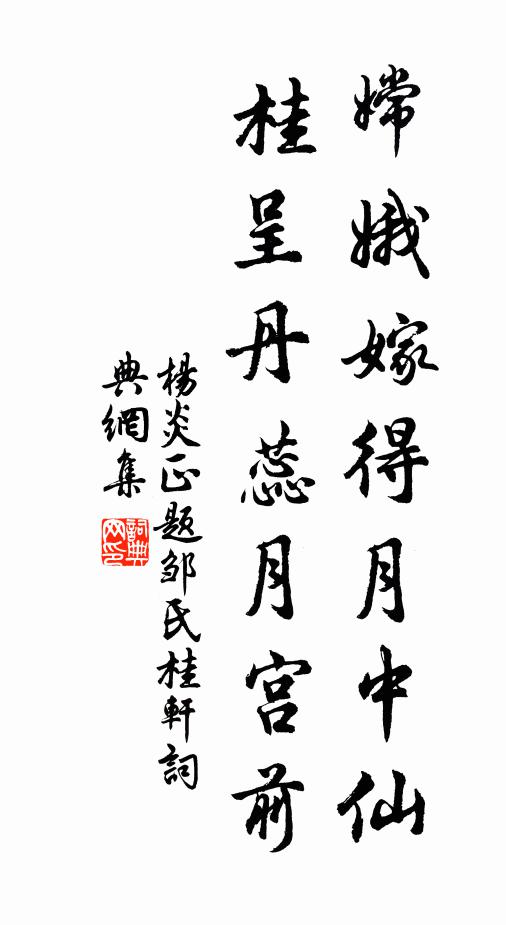 嫦娥嫁得月中仙
桂呈丹蕊月宫前
楊炎正题邹氏桂軒詞
典網集
詞典网印